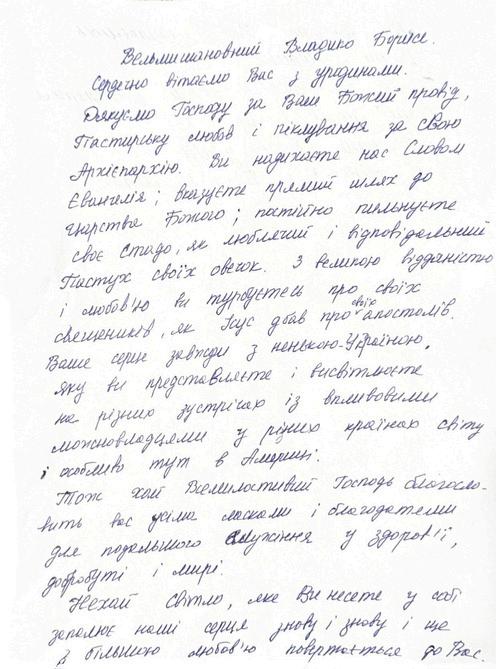 Вельмишановний Владико Борисе.
Сердечно вітаємо Вас з уродинами.
Дякуємо Господу за Ваш Божий провід,
Пастирську любов і піклування за свою
Архієпархію. Ви надихаєте нас Словом
Євангелія; вказуєте прямий шлях до
царства Божого; постійно пильнуєте
своє стадо, як люблячий і відповідальний
Пастух своїх овечок. З великою відданістю
і любов'ю ви турбуєтесь про своїх
священиків, як Ісус дбав про своїх апостолів.
Ваше серце завжди з ненькою-Україною,
яку ви представляєте і висвітлюєте
на різних зустрічах із впливовими
можновладцями у різних країнах світу
і особливо тут в Америці.
Тож хай Всемилостивий Господь благосло-
вить вас усіма ласками і благодатями
для подальшого служіння у здоров'ї,
добробуті і мирі.
Нехай світло, яке Ви несете у собі
запалює наші серця знову і знову і ще
з більшою любов'ю повертається до Вас.